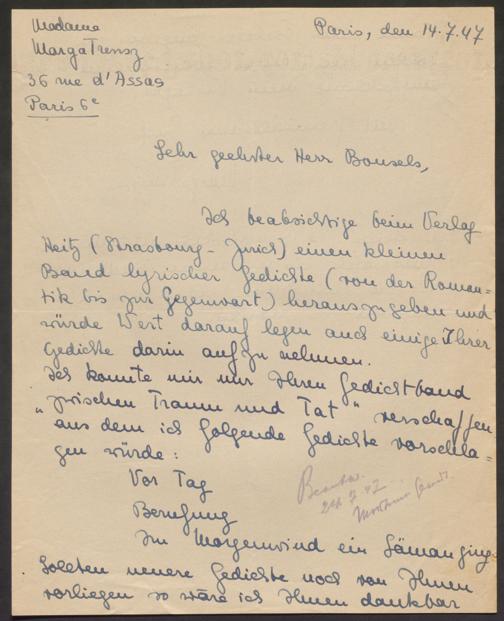 Madame
Marga Trensz
36 rue d'Assas
Paris 6e
Paris, den 14.7.47
Sehr geehrter Herr Bonsels,
Ich beabsichtige beim Verlag
Heitz (Strasbourg - Zurich) einen kleinen
Band lyrischer Gedichte (von der Roman=
tik bis zur Gegenwart) herauszugeben und
würde Wert darauf legen auch einige Ihrer
Gedichte darin aufzunehmen.
Ich konnte mir nur Ihren Gedichtband
"zwischen Traum und Tat" verschaffen
aus dem ich folgende Gedichte vorschla=
gen würde:
Vor Tag
Berufung
Im Morgenwind ein Sämann ging
Sollten neuere Gedichte noch von Ihnen
vorliegen so wäre ich Ihnen dankbar